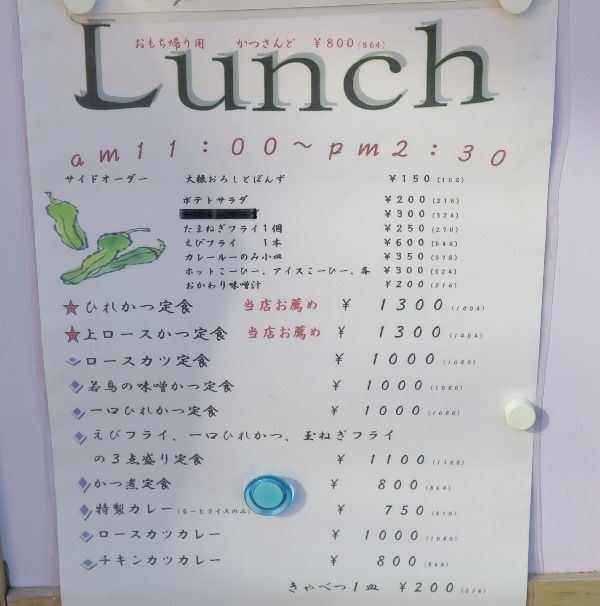 Lunch
おもち帰り用 かつさんど ￥800(864)
am11:00～pm2:30
サイドオーダー 大根おろしとぽんず ￥150(162)
ポテトサラダ ￥200(216)
￥300(324)
たまねぎフライ1個 ￥250(270)
えびフライ 1本 ￥600(648)
カレールーのみ小皿 ￥350(378)
ホットこーひー、アイスこーひー、各 ￥300(324)
おかわり味噌汁 ￥200(216)
★ひれかつ定食 当店お薦め ￥1300(1404)
★上ロースかつ定食 当店お薦め ￥1300(1404)
ロースカツ定食 ￥1000(1080)
若鳥の味噌かつ定食 ￥1000(1080)
一口ひれかつ定食 ￥1000(1080)
えびフライ、一口ひれかつ、玉ねぎフライ
の3点盛り定食 ￥1100(1188)
かつ煮定食 ￥800(864)
特製カレー(るーとライスのみ) ￥750(810)
ロースカツカレー ￥1000(1080)
チキンカツカレー ￥800(864)
きゃべつ1皿 ￥200(216)